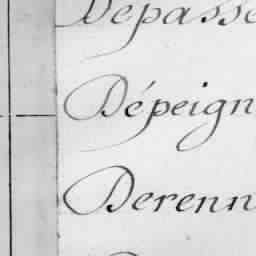 Dépasse
Dépeign
Derenn